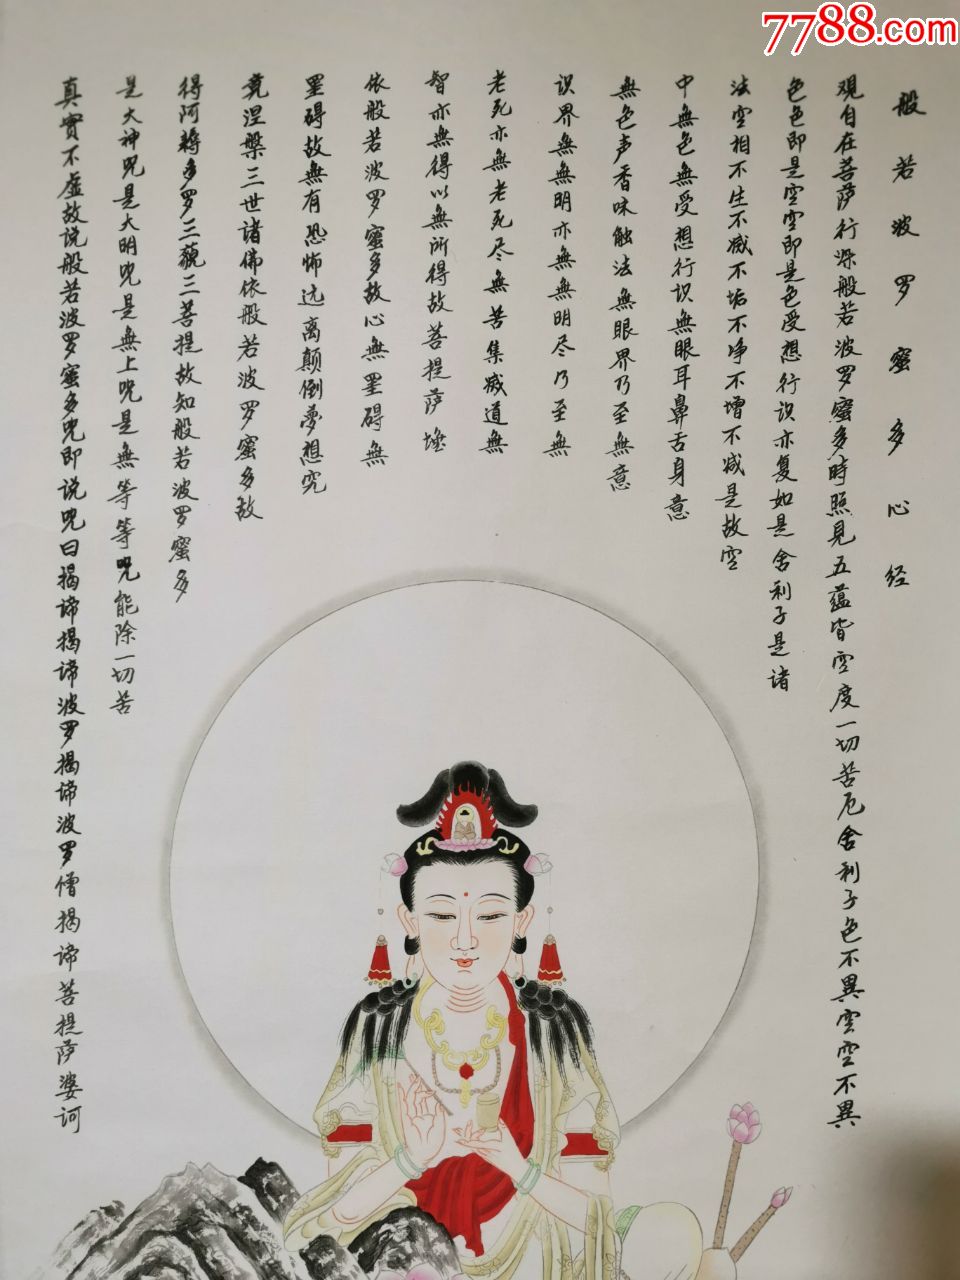 7788.com
般若波罗蜜多心经
观自在菩萨行深般若波罗蜜多時照見五蕴皆空度一切苦厄舍利子色不異空空不異
色色即是空空即是色受想行识亦复如是舍利子是诸
法空相不生不减不垢不净不增不减是故空
中無色無受想行识無眼耳鼻舌身意
無色声香味触法無眼界乃至無意
识界無無明亦無無明尽乃至無
老死亦無老死尽無苦集减道無
智亦無得以無所得故菩提萨埵
依般若波罗蜜多故心無罣碍無
罣碍故無有恐怖远离颠倒夢想究
竟涅槃三世诸佛依般若波罗蜜多故
得阿耨多罗三藐三菩提故知般若波罗蜜多
是大神咒是大明咒是無上咒是無等等咒能除一切苦
真實不虚故说般若波罗蜜多咒即说咒曰揭谛揭谛波罗揭谛波罗僧揭谛菩提萨婆诃